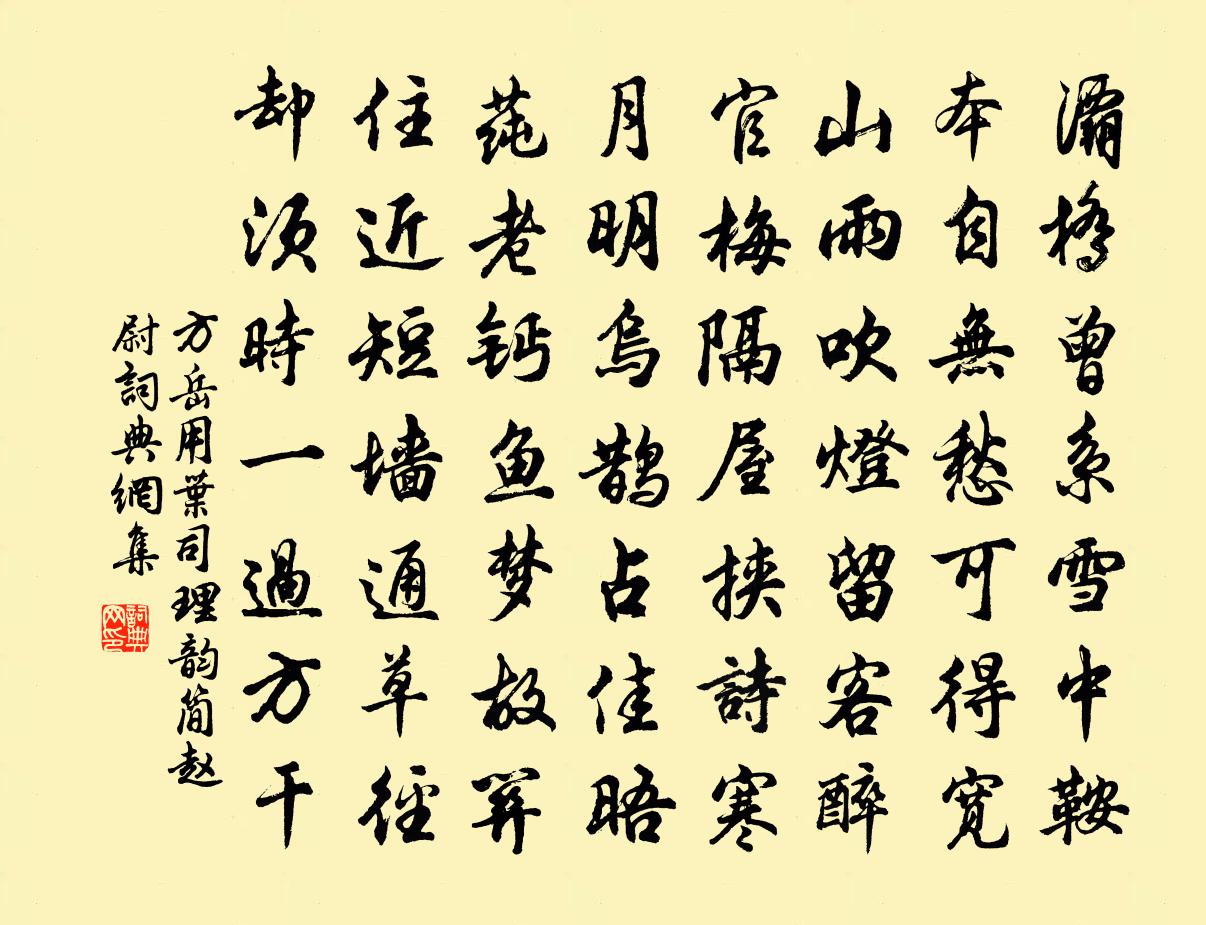 灞橋曾系雪中鞍
本自無愁可得寬
山雨吹燈留客醉
官梅隔屋挾詩寒
月明烏鵲占佳晤
蒓老鈣魚梦故關
住近短墙通草徑
却須時一過方干
方岳用葉司理韵简赵
尉詞典網集
詞典网印